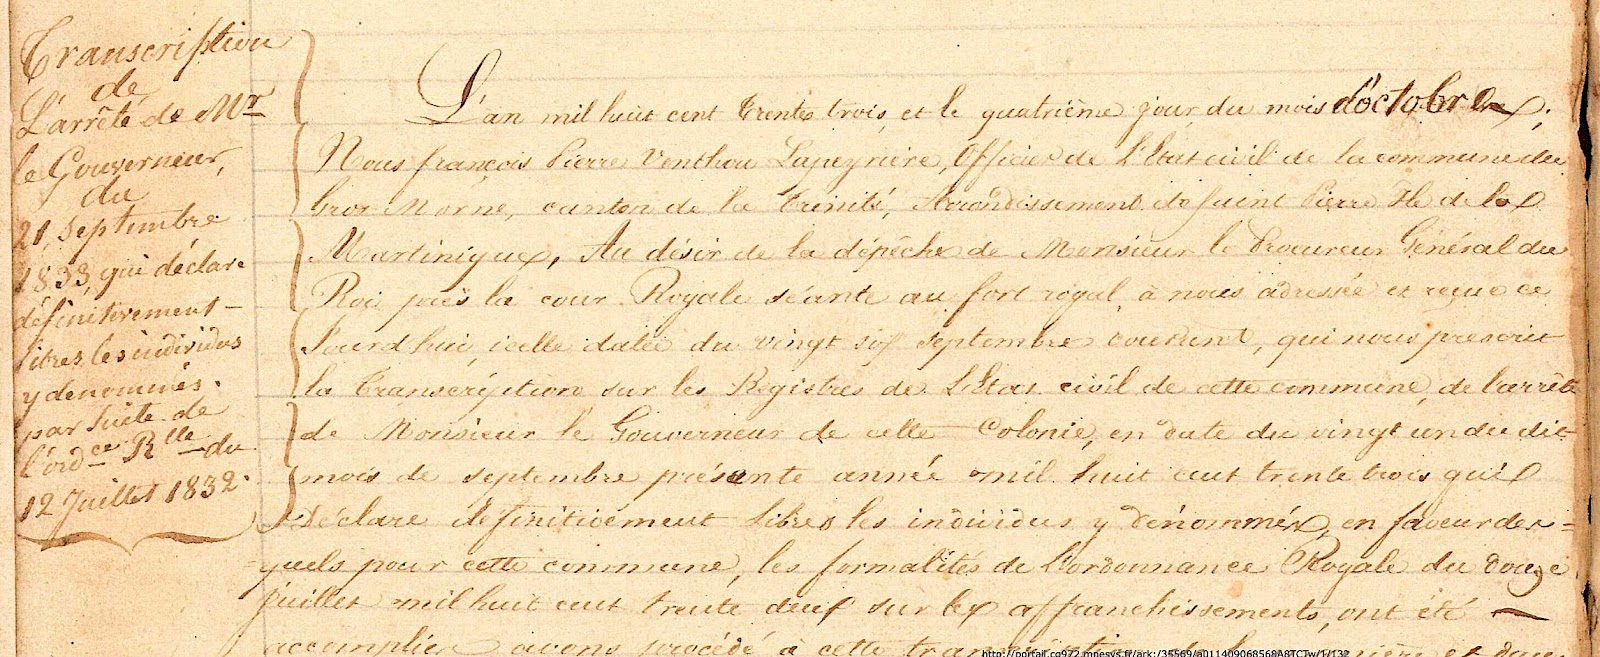 Transcription
de
L'arrêté de Mr
le Gouverneur,
du
21, Septembre
1833, qui déclare
définitivement -
libres les individus
y denommés.
par suite de
l'ordce Rlle du
12 Juillet 1832.
L'an mil huit cent trente trois, et le quatrième jour du mois d'octobre;
Nous françois Pierre Venthou Lapeyrière, Officier de L'Etat civil de la commune du
Gros Morne, canton de la Trinité, Arrondissement de saint Pierre Ile de la
Martinique, Au désir de la dépêche de Monsieur le Procureur Général du
Roi près la cour Royale séante au fort royal à nous adressée et reçue ce
Jourd'hui, icelle datée du vingt six Septembre courant, qui nous prescrit
la Transcription sur les Registres de L'Etat civil de cette commune, de l'arrêté
de Monsieur le Gouverneur de cette Colonie, en date du vingt un du dit
mois de septembre présente année mil huit cent trente trois qui
Déclare définitivement Libres les individus y dénommés, en faveur des =
quels pour cette commune, les formalités de L'ordonnance Royale du douze
juillet mil huit cent trente deux sur les affranchissements, ont été
accomplies avons procédé à cette
http://portail.cg972.mnesys.fr/ark:/35569/a011409068568A8TCTw/1/132